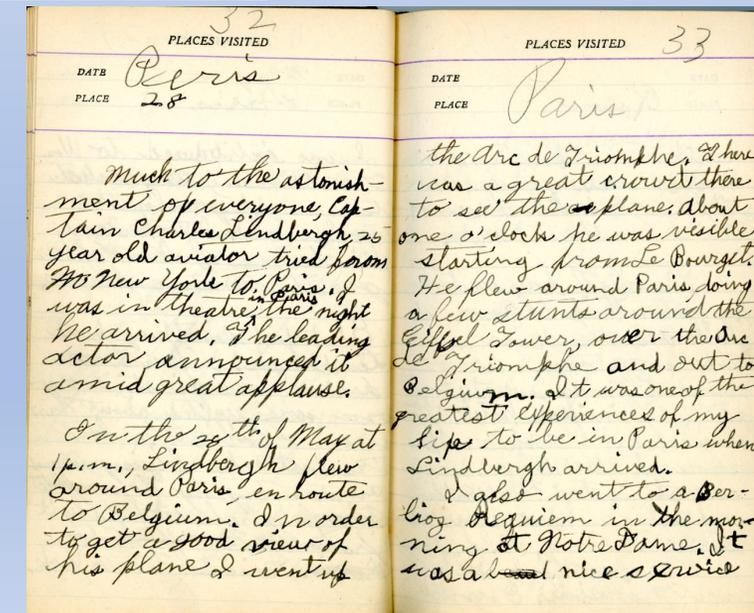 32
PLACES VISITED
DATE Peris
PLACE 28
Much to the astonish-
ment of everyone, Cap-
tain Charles Lindbergh, 25
year old aviator tried from
New York to Paris. I
was in theatre in Paris the night
he arrived. The leading
actor announced it
amid great applause.
In the th of May at
1 p.m., Lindbergh flew
around Paris, en route
to Belgium. In order
to get a good view of
his plane I went up
33
PLACES VISITED
DATE
PLACE Paris
the Arc de Triomphe. There
was a great crowd there
to see the plane. About
one o'clock he was visible
starting from Le Bourget.
He flew around Paris, doing
a few stunts around the
Eiffel Tower, over the Arc
de Triomphe and out to
Belgium. It was one of the
greatest experiences of my
life to be in Paris when
Lindbergh arrived.
I also went to a Ber-
lioz Requiem in the mor-
ning at Notre Dame. It
was a nice service